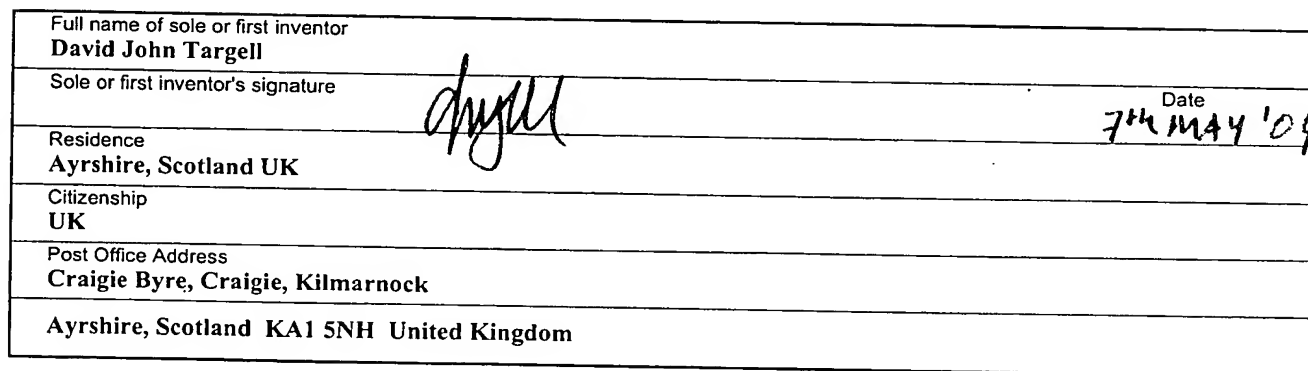 Full name of sole or first inventor
David John Targell
Sole or first inventor's signature
Date
7th MAY '04
Residence
Ayrshire, Scotland UK
Citizenship
UK
Post Office Address
Craigie Byre, Craigie, Kilmarnock
Ayrshire, Scotland KA1 5NH United Kingdom